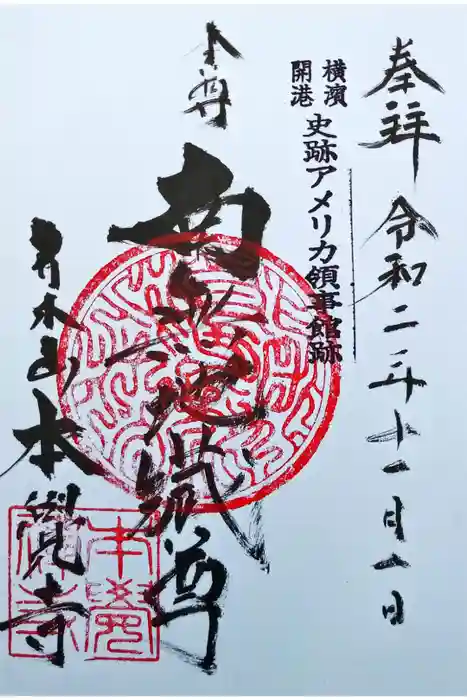 奉拝 令和二年十一月一日
横濱
開港
史跡アメリカ領事館跡
本尊
南無地蔵尊
青木山本覺寺
本覺
寺